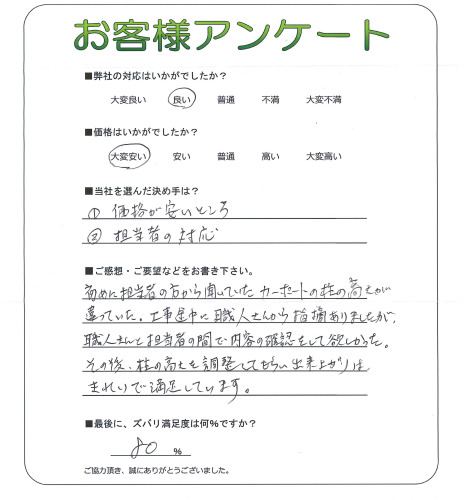 お客様アンケート
■弊社の対応はいかがでしたか？
大変良い 良い 普通 不満 大変不満
■価格はいかがでしたか？
大変安い 安い 普通 高い 大変高い
■当社を選んだ決め手は？
① 価格が安いところ
② 担当者の対応
■ご感想・ご要望などをお書き下さい。
初めに担当者の方から聞いていたカーポートの柱の高さが
違っていた。工事途中に職人さんから指摘ありましたが、
職人さんと担当者の間で内容の確認をして欲しかった。
その後、柱の高さを調整してもらい出来上がりは
きれいで満足しています。
■最後に、ズバリ満足度は何%ですか？
80 %
ご協力頂き、誠にありがとうございました。